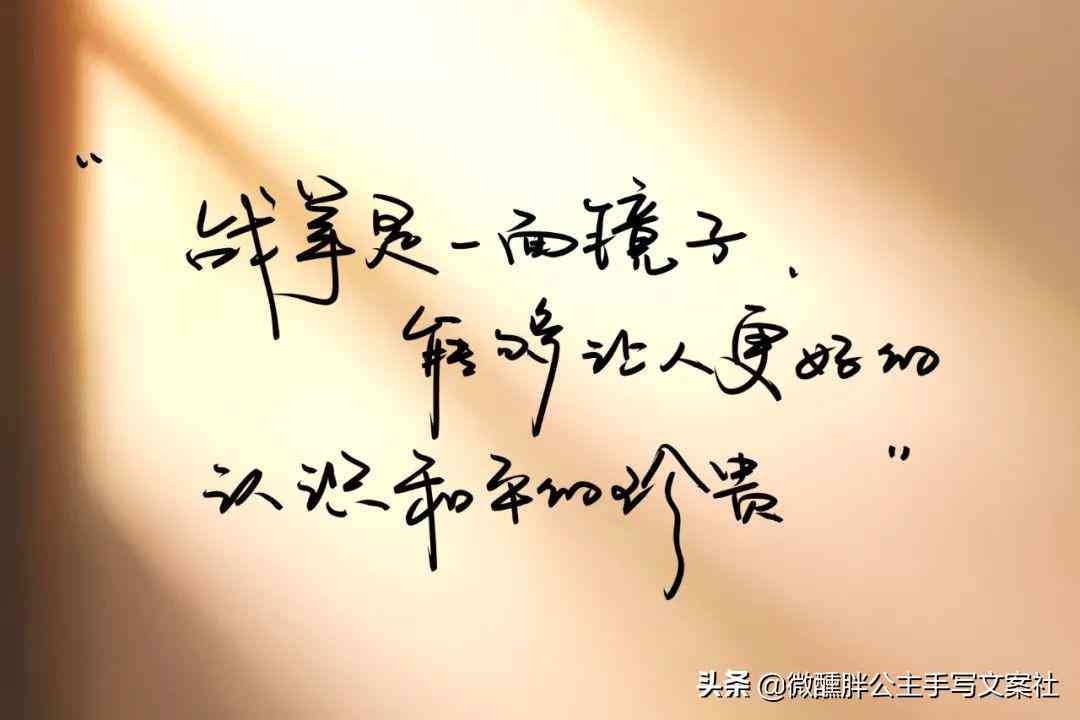 “战争是一面镜子,
能够让人更好的
认识和平的珍贵”
头条 @微醺胖公主手写文案社